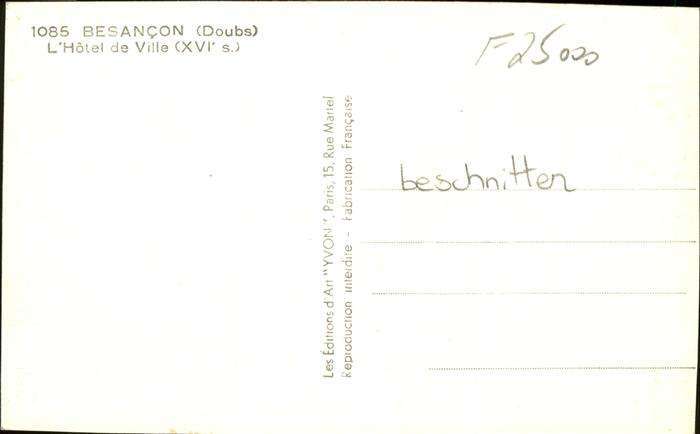 1085 BESANÇON (Doubs)
L'Hôtel de Ville (XVIe s.)
F25000
Les Éditions d'Art "YVON", Paris, 15, Rue Martel
Reproduction interdite - Fabrication Française
beschnitten